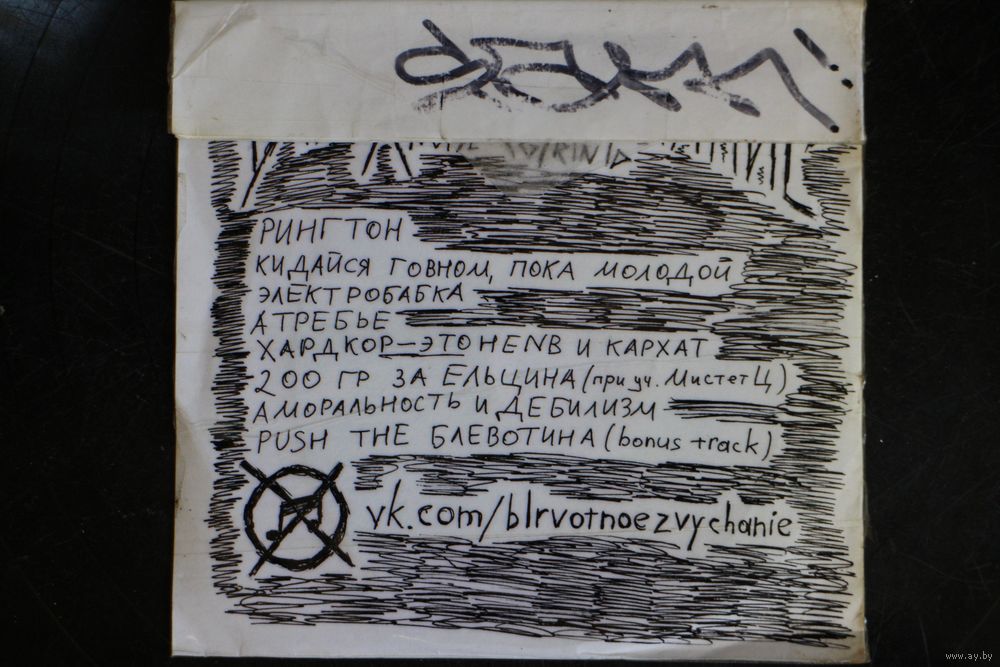 РИНГТОН
КИДАЙСЯ ГОВНОМ, ПОКА МОЛОДОЙ
ЭЛЕКТРОБАБКА
АТРЕБЬЕ
ХАРДКОР—ЭТО НЕNВ И КАРХАТ
200 ГР ЗА ЕЛЬЦИНА (при уч. Мистет Ц)
АМОРАЛЬНОСТЬ И ДЕБИЛИЗМ
PUSH THE БЛЕВОТИНА (bonus track)
vk.com/blrvotnoezvychanie
www.ay.by